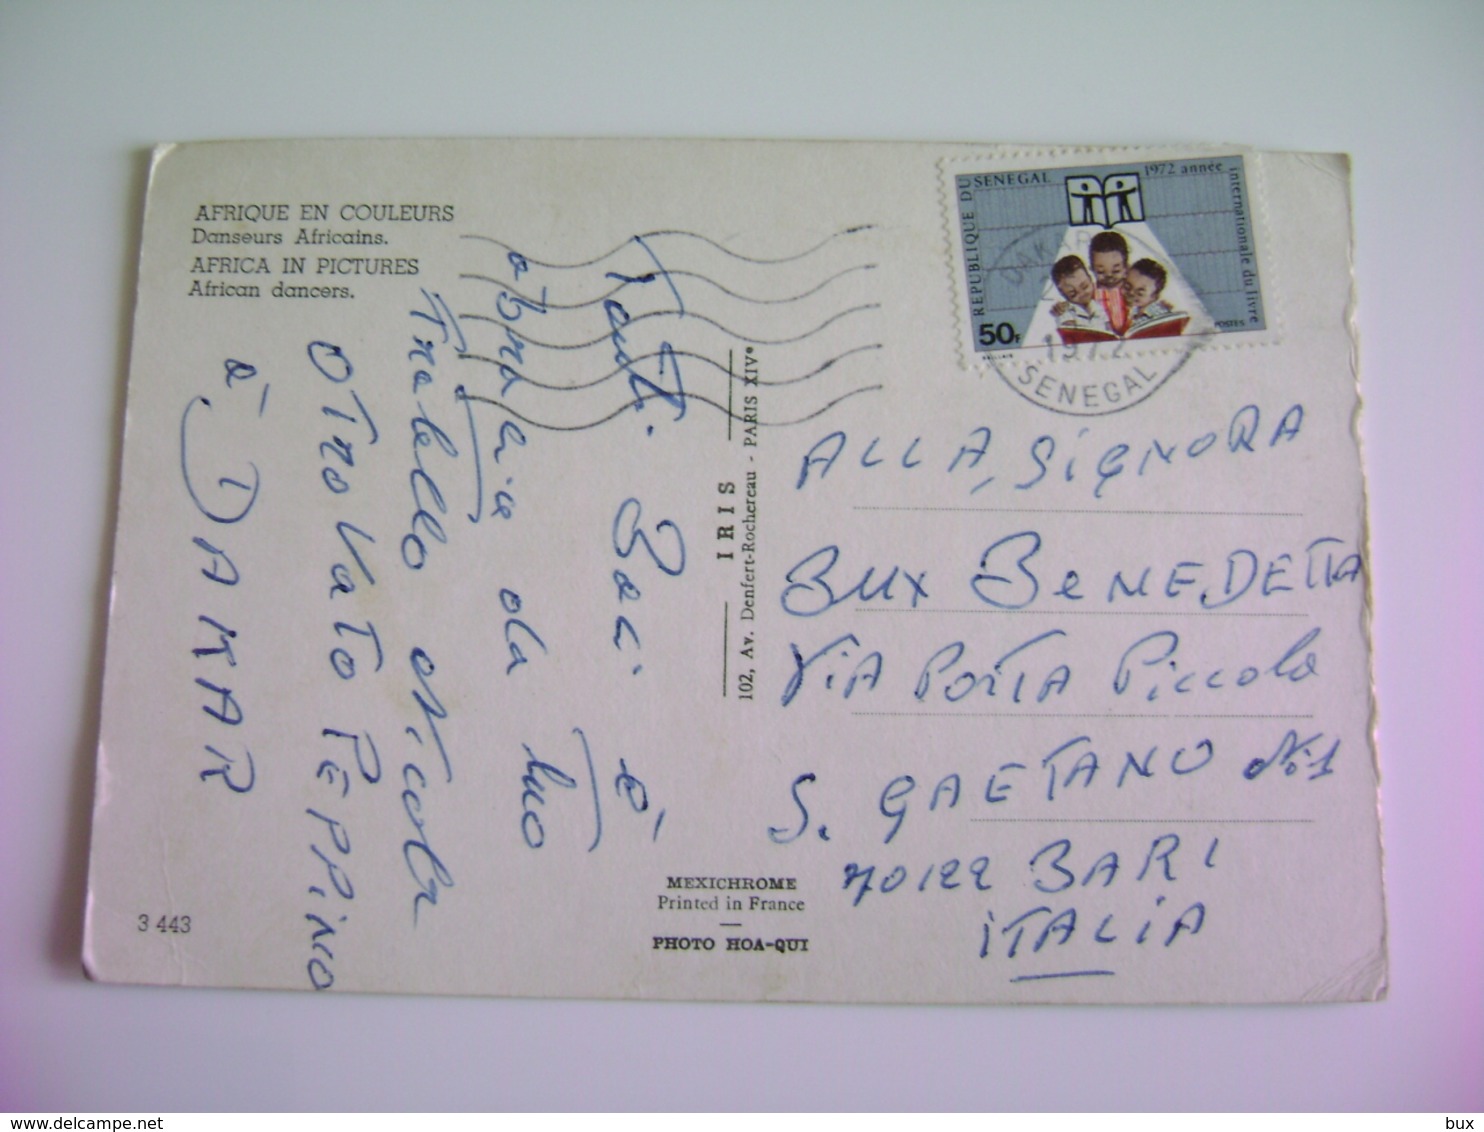 AFRIQUE EN COULEURS
Danseurs Africains.
AFRICA IN PICTURES
African dancers.
REPUBLIQUE DU SENEGAL
1972 année
internationale du livre
50F
POSTES
DAKAR
1972
SENEGAL
Tanti Baci e
abbracci dal tuo
Fratello Nicola
PEPPINO
à DAKAR
IRIS
102, Av. Denfert-Rochereau - PARIS XIVe
ALLA SIGNORA
BUX BENEDETTA
VIA PORTA Piccola
S. GAETANO N. 1
70122 BARI
ITALIA
MEXICHROME
Printed in France
PHOTO HOA-QUI
3 443
bux